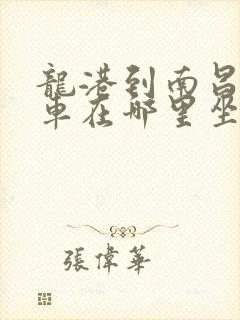 龍港到南昌
車在哪里坐
張偉華